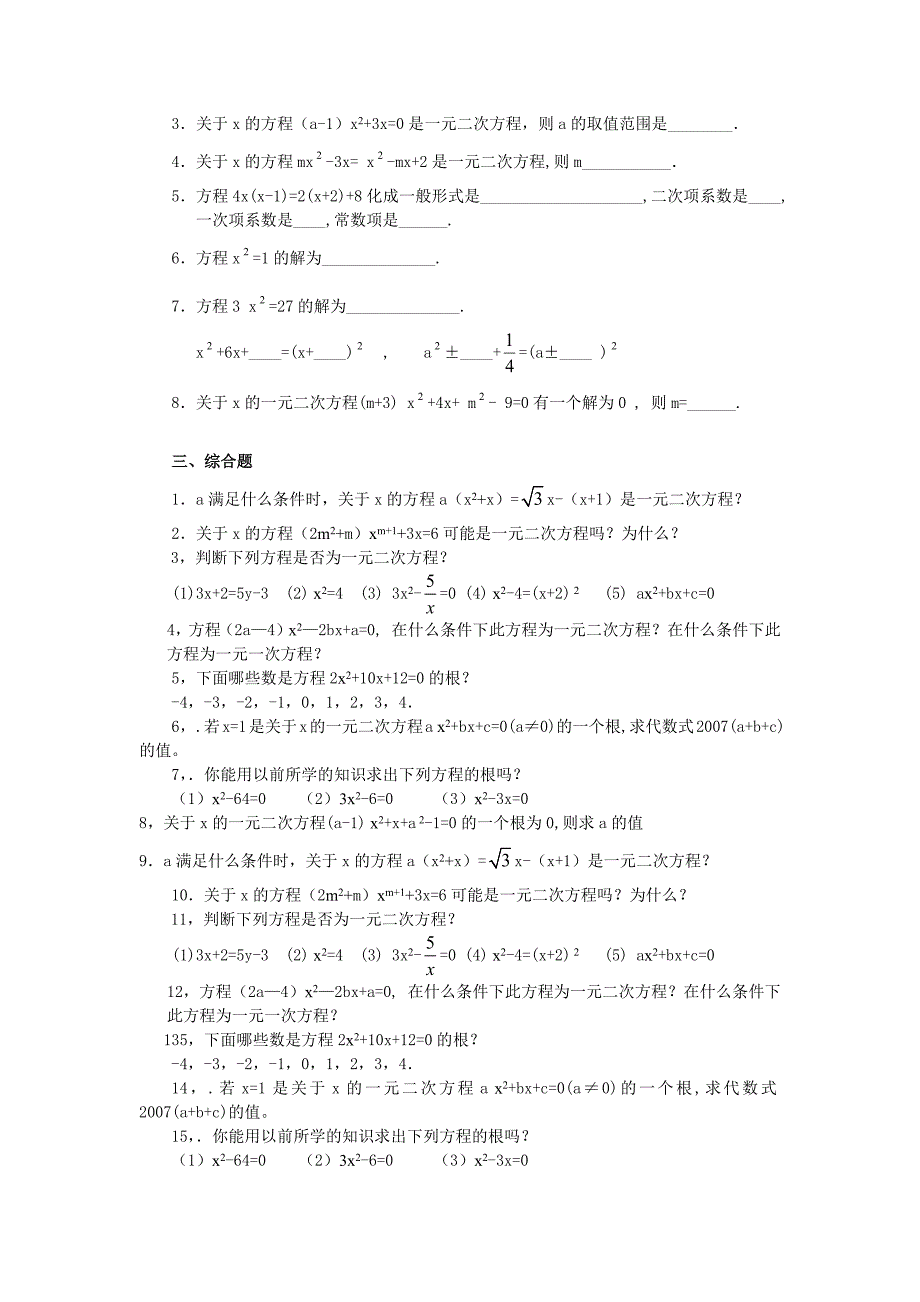 3．关于x的方程（a-1）x²+3x=0是一元二次方程，则a的取值范围是________．
4．关于x的方程mx²-3x= x²-mx+2是一元二次方程,则m___________．
5．方程4x(x-1)=2(x+2)+8化成一般形式是____________________,二次项系数是____,
一次项系数是____,常数项是______.
6．方程x²=1的解为______________.
7．方程3 x²=27的解为______________.
x²+6x+____=(x+____)² , a²±____+\frac{1}{4}=(a±____ )²
8．关于x的一元二次方程(m+3) x²+4x+ m²- 9=0有一个解为0 , 则m=______.
三、综合题
1．a满足什么条件时，关于x的方程a（x²+x）=√3x-（x+1）是一元二次方程？
2．关于x的方程（2m²+m）xᵐ⁺¹+3x=6可能是一元二次方程吗？为什么？
3，判断下列方程是否为一元二次方程？
(1)3x+2=5y-3 (2) x²=4 (3) 3x²-\frac{5}{x}=0 (4) x²-4=(x+2)² (5) ax²+bx+c=0
4，方程（2a—4）x²—2bx+a=0, 在什么条件下此方程为一元二次方程？在什么条件下此
方程为一元一次方程？
5，下面哪些数是方程2x²+10x+12=0的根？
-4，-3，-2，-1，0，1，2，3，4．
6，.若x=1是关于x的一元二次方程a x²+bx+c=0(a≠0)的一个根,求代数式2007(a+b+c)
的值。
7，．你能用以前所学的知识求出下列方程的根吗？
（1）x²-64=0 （2）3x²-6=0 （3）x²-3x=0
8，关于x的一元二次方程(a-1) x²+x+a²-1=0的一个根为0,则求a的值
9．a满足什么条件时，关于x的方程a（x²+x）=√3x-（x+1）是一元二次方程？
10．关于x的方程（2m²+m）xᵐ⁺¹+3x=6可能是一元二次方程吗？为什么？
11，判断下列方程是否为一元二次方程？
(1)3x+2=5y-3 (2) x²=4 (3) 3x²-\frac{5}{x}=0 (4) x²-4=(x+2)² (5) ax²+bx+c=0
12，方程（2a—4）x²—2bx+a=0, 在什么条件下此方程为一元二次方程？在什么条件下
此方程为一元一次方程？
135，下面哪些数是方程2x²+10x+12=0的根？
-4，-3，-2，-1，0，1，2，3，4．
14，.若x=1是关于x的一元二次方程a x²+bx+c=0(a≠0)的一个根,求代数式
2007(a+b+c)的值。
15，．你能用以前所学的知识求出下列方程的根吗？
（1）x²-64=0 （2）3x²-6=0 （3）x²-3x=0